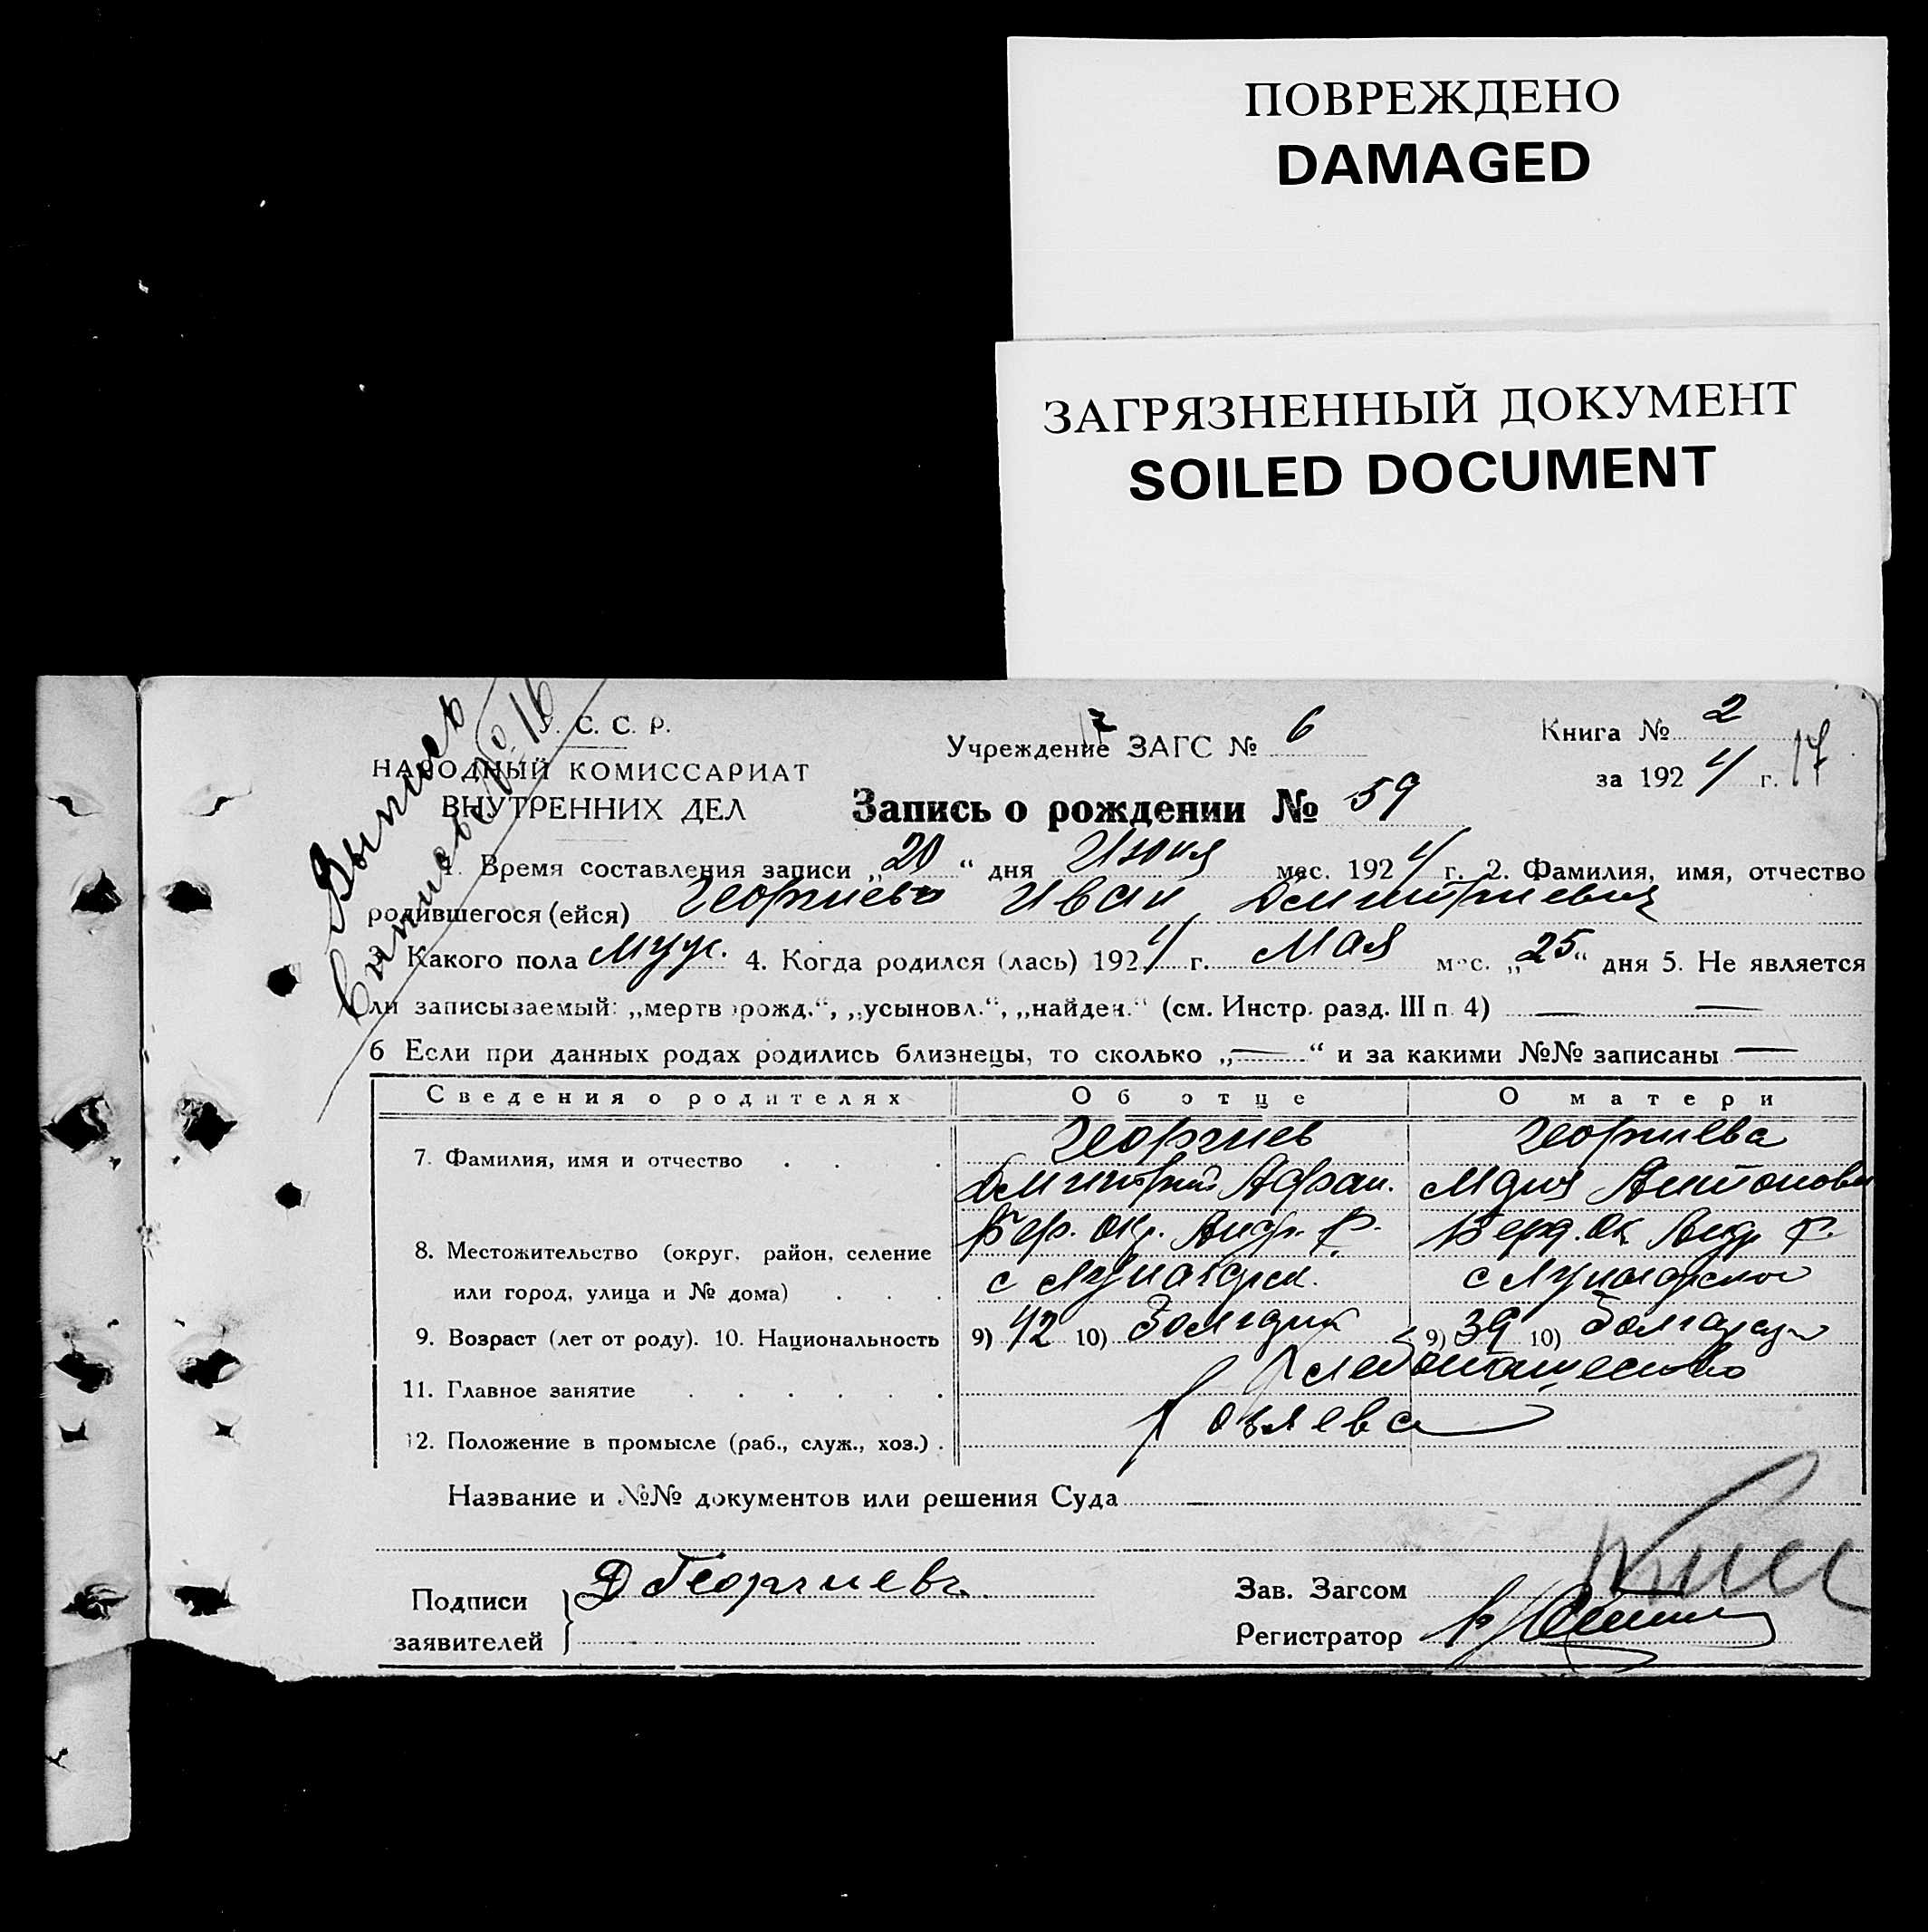 ПОВРЕЖДЕНО
DAMAGED
ЗАГРЯЗНЕННЫЙ ДОКУМЕНТ
SOILED DOCUMENT
С. С. Р.
НАРОДНЫЙ КОМИССАРИАТ
ВНУТРЕННИХ ДЕЛ
Учреждение ЗАГС № 6
Книга № 2
за 1924 г. 17
Запись о рождении № 59
1. Время составления записи „20“ дня Июня мес. 1924 г. 2. Фамилия, имя, отчество
родившегося (ейся) Георгиев Иван Дмитриевич
3. Какого пола Муж. 4. Когда родился (лась) 1924 г. Мая мес. „25“ дня 5. Не является
ли записываемый: „мертворожд.“, „усыновл.“, „найден.“ (см. Инстр. разд. III п. 4) — —
6 Если при данных родах родились близнецы, то сколько „—“ и за какими №№ записаны —
Сведения о родителях Об отце О матери
7. Фамилия, имя и отчество Георгиев Георгиева
Дмитрий Афан. Мария Антонов
8. Местожительство (округ, район, селение Бер. Ок. Андр. Р. Берд. Ок Андр Р.
или город, улица и № дома)
9. Возраст (лет от роду). 10. Национальность 9) 42 10) Болгарин 9) 39 10) Болгарка
11. Главное занятие Хлебопашество
12. Положение в промысле (раб., служ., хоз.) Хозяева
Название и №№ документов или решения Суда
Подписи
заявителей Д Георгиев
Зав. Загсом
Регистратор